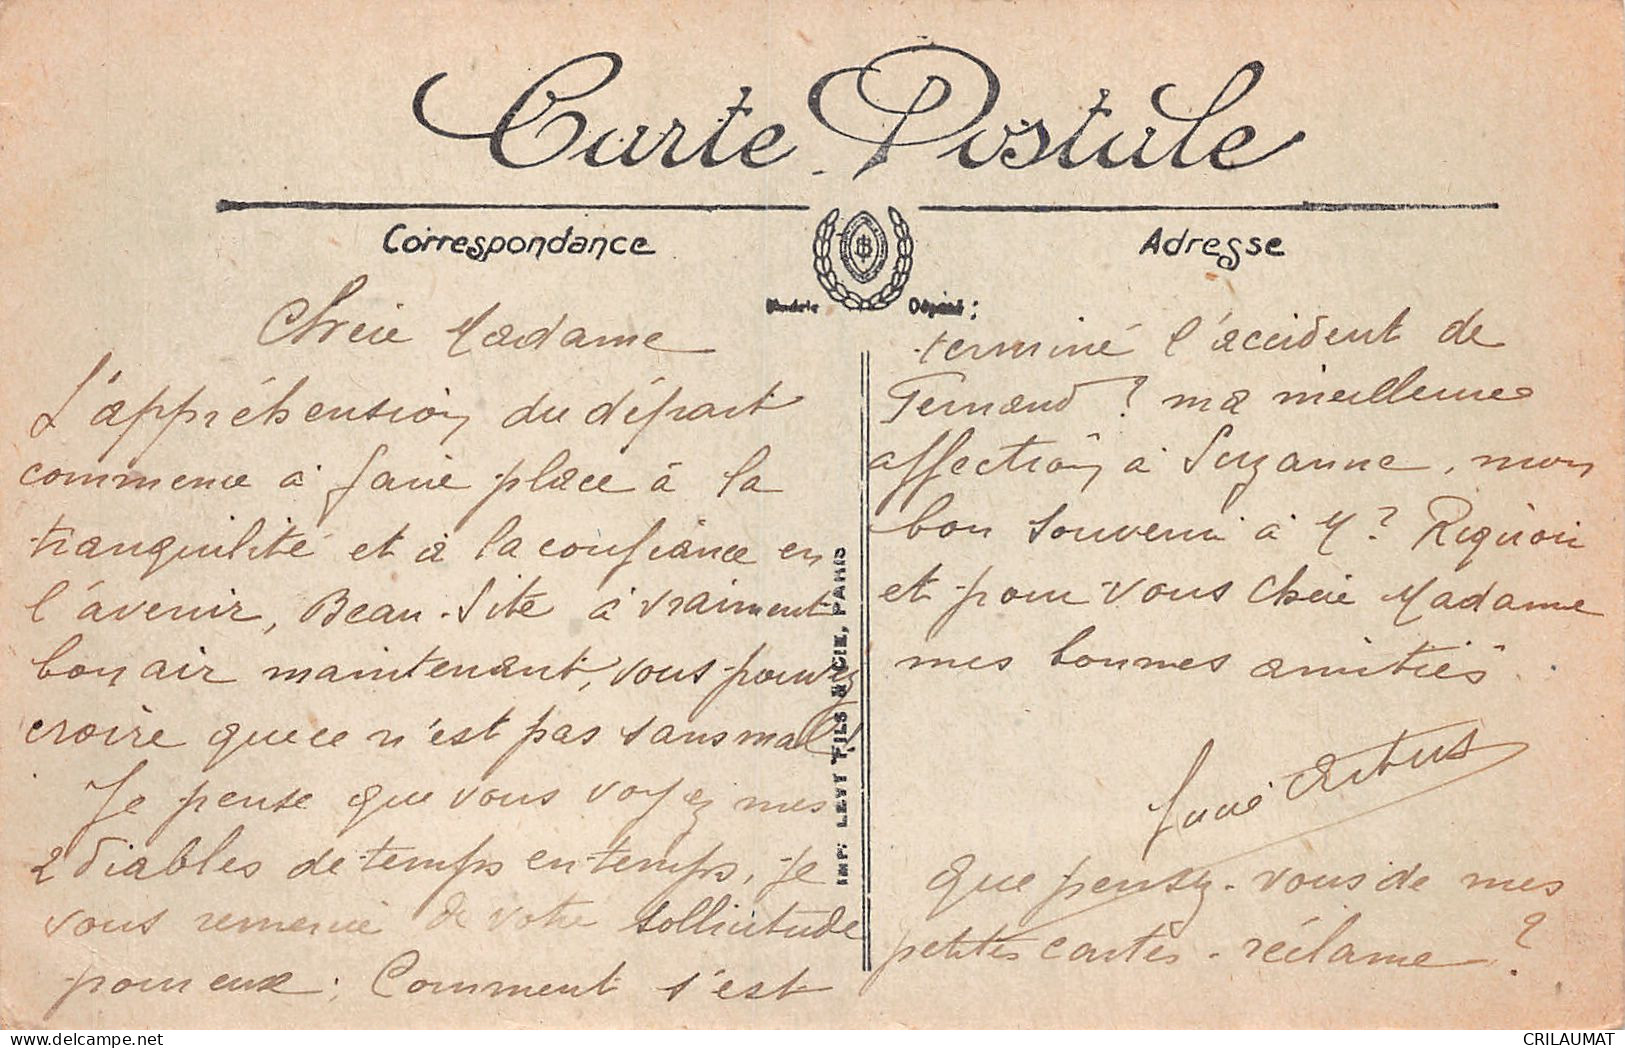 Carte Postale
Correspondance
Adresse
Modèle Déposé:
Chère Madame
L'appréhension du départ
commence à faire place à la
tranquilité et à la confiance en
l'avenir, Beau-Site à vraiment
bon air maintenant, vous pouvez
croire que ce n'est pas sans mal!
Je pense que vous voyez mes
2 diables de temps en temps, je
vous remercie de votre sollicitude
pour eux. Comment s'est
terminé l'accident de
Fernand? ma meilleure
affection à Suzanne, mon
bon souvenir à Mr
et pour vous chère Madame
mes bonnes amitiés.
Artus
que pensez-vous de mes
petites cartes-réclame?
IMP. LEVY FILS & CIE, PARIS
CRILAUMAT